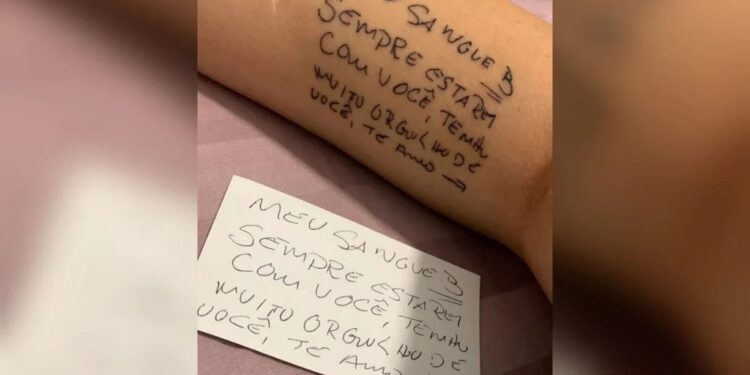 U SANGUE B
SEMPRE ESTAREI
COM VOCÊ, TENHO
MUITO ORGULHO DE
VOCÊ, TE AMO →
MEU SANGUE B
SEMPRE ESTAREI
COM VOCÊ, TENHO
MUITO ORGULHO DE
VOCÊ, TE AMO